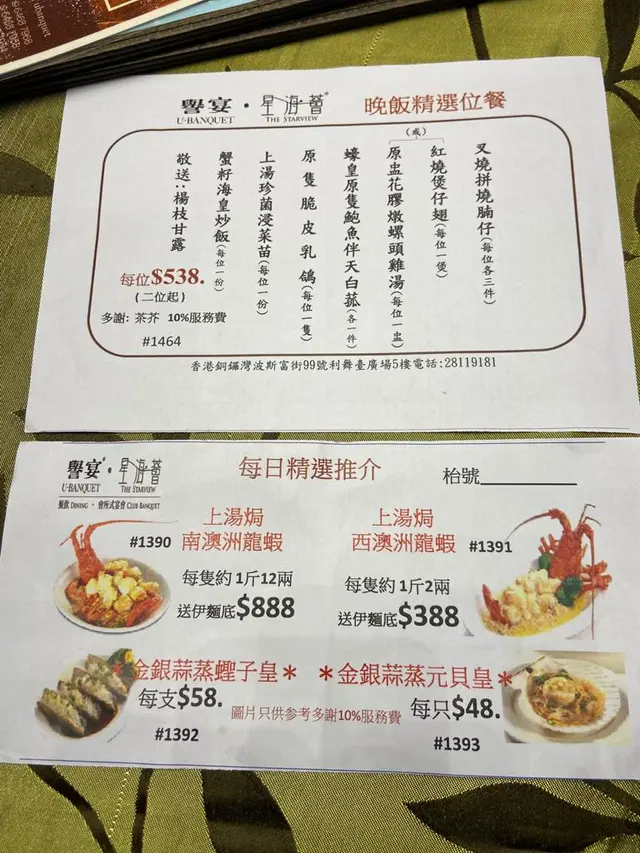 譽宴・星海薈
U-BANQUET THE STARVIEW
晚飯精選位餐
叉燒拼燒腩仔(每位各三件)
紅燒煲仔翅(每位一煲)
(或)
原盅花膠燉螺頭雞湯(每位一盅)
蠔皇原隻鮑魚伴天白菰(各一件)
原隻脆皮乳鴿(每位一隻)
上湯珍菌浸菜苗(每位一份)
蟹籽海皇炒飯(每位一份)
敬送:楊枝甘露
每位$538.
(二位起)
多謝: 茶芥 10%服務費
#1464
香港銅鑼灣波斯富街99號利舞臺廣場5樓電話:28119181
譽宴・星海薈
U-BANQUET THE STARVIEW
餐飲 DINING・會所式宴會 CLUB BANQUET
每日精選推介
枱號
上湯焗
南澳洲龍蝦
#1390
每隻約 1斤12兩
送伊麵底$888
上湯焗
西澳洲龍蝦
#1391
每隻約 1斤2兩
送伊麵底$388
*金銀蒜蒸蟶子皇*
每支$58.
#1392
*金銀蒜蒸元貝皇*
每只$48.
#1393
圖片只供參考多謝10%服務費